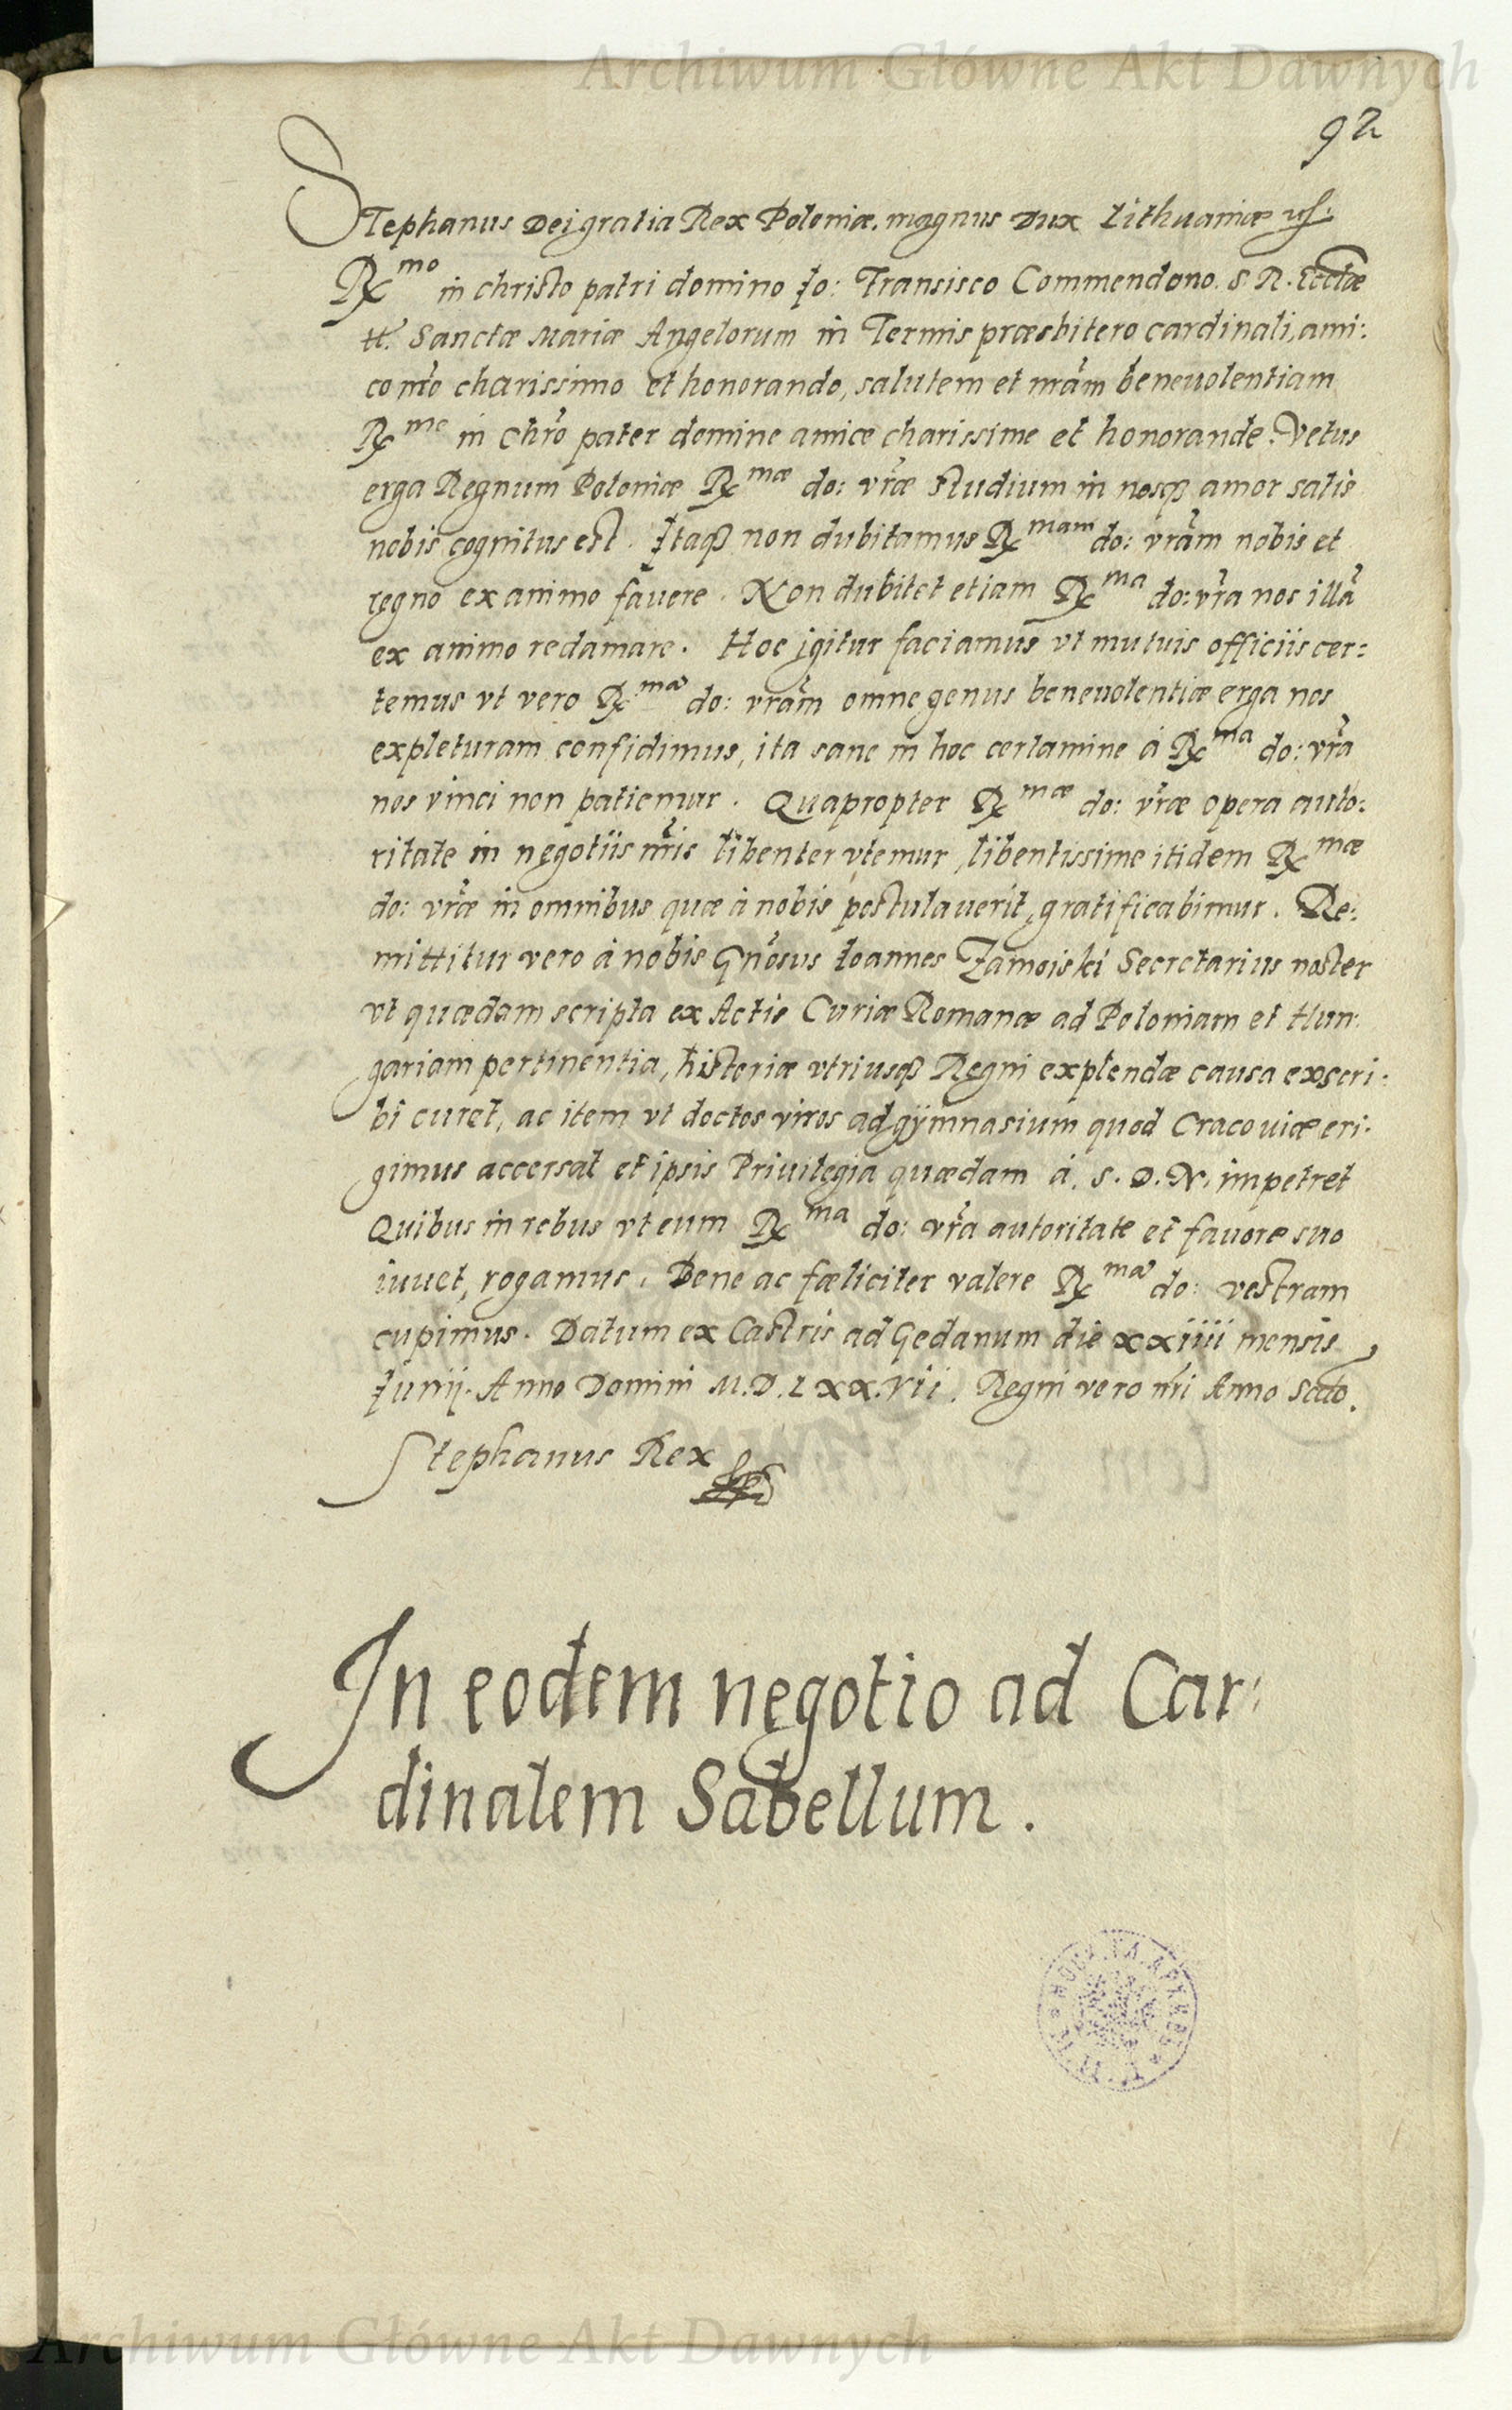 Archiwum Główne Akt Dawnych
92
Stephanus Dei gratia Rex Poloniæ, magnus Dux Lithuaniæ
Rx^mo in christo patri domino Jo: Fransisco Commendono. S. R. Ecclæ
tt. Sanctæ Mariæ Angelorum in Termis præsbitero cardinali, ami:
co nr̃o charissimo et honorando, salutem et nr̃am beneuolentiam
Rx^me in chr̃o pater domine amice charissime et honorande. Vetus
erga Regnum Poloniæ Rx^mæ do: vr̃æ studium in nosq₃ amor satis
nobis cognitus est. Itaq₃ non dubitamus Rx^mam do: vr̃am nobis et
regno ex animo fauere. Non dubitet etiam Rx^ma do: vr̃a nos illã
ex animo redamare. Hoc igitur faciamus vt mutuis officiis cer:
temus vt vero Rx^mã do: vr̃am omne genus beneuolentiæ erga nos
expleturam confidimus, ita sane in hoc certamine á Rx^ma do: vr̃a
nos vinci non patiemur. Quapropter Rx^mæ do: vr̃æ opera auto:
ritate in negotiis nr̃is libenter vtemur, libentissime itidem Rx^mæ
do: vr̃æ in omnibus quæ á nobis postulauerit, gratificabimur. Re:
mittitur vero á nobis Gñosus Ioannes Zamoiski Secretarius noster
vt quædam scripta ex Actis Curiæ Romanæ ad Poloniam et Hun:
gariam pertinentia, historiæ vtriusq₃ Regni explendæ causa exscri:
bi curet, ac item vt doctos viros ad gÿmnasium quod Cracouiæ eri:
gimus accersat et ipsis Priuilegia quædam á. S. D. N. impetret
Quibus in rebus vt eum Rx^ma do: vr̃a autoritate et fauore suo
iuuet, rogamus. Bene ac fæliciter valere Rx^mã do: vestram
cupimus. Datum ex Castris ad Gedanum die xxiiii mensis
Junij. Anno Domini M.D.Lxx.Vii. Regni vero nr̃i Anno Scdo.
Stephanus Rex
In eodem negotio ad Car:
dinalem Sabellum.
Archiwum Główne Akt Dawnych